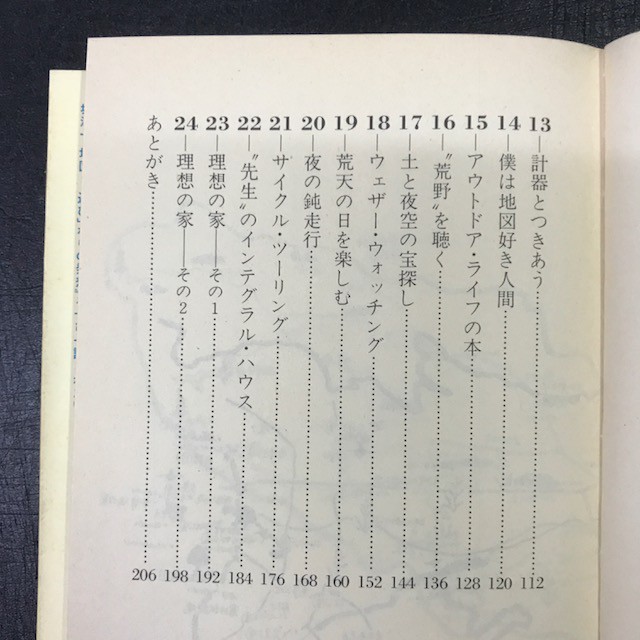 13—計器とつきあう……112
14—僕は地図好き人間……120
15—アウトドア・ライフの本……128
16—〝荒野〟を聴く……136
17—土と夜空の宝探し……144
18—ウェザー・ウォッチング……152
19—荒天の日を楽しむ……160
20—夜の鈍走行……168
21—サイクル・ツーリング……176
22—〝先生〟のインテグラル・ハウス……184
23—理想の家——その1……192
24—理想の家——その2……198
あとがき……206